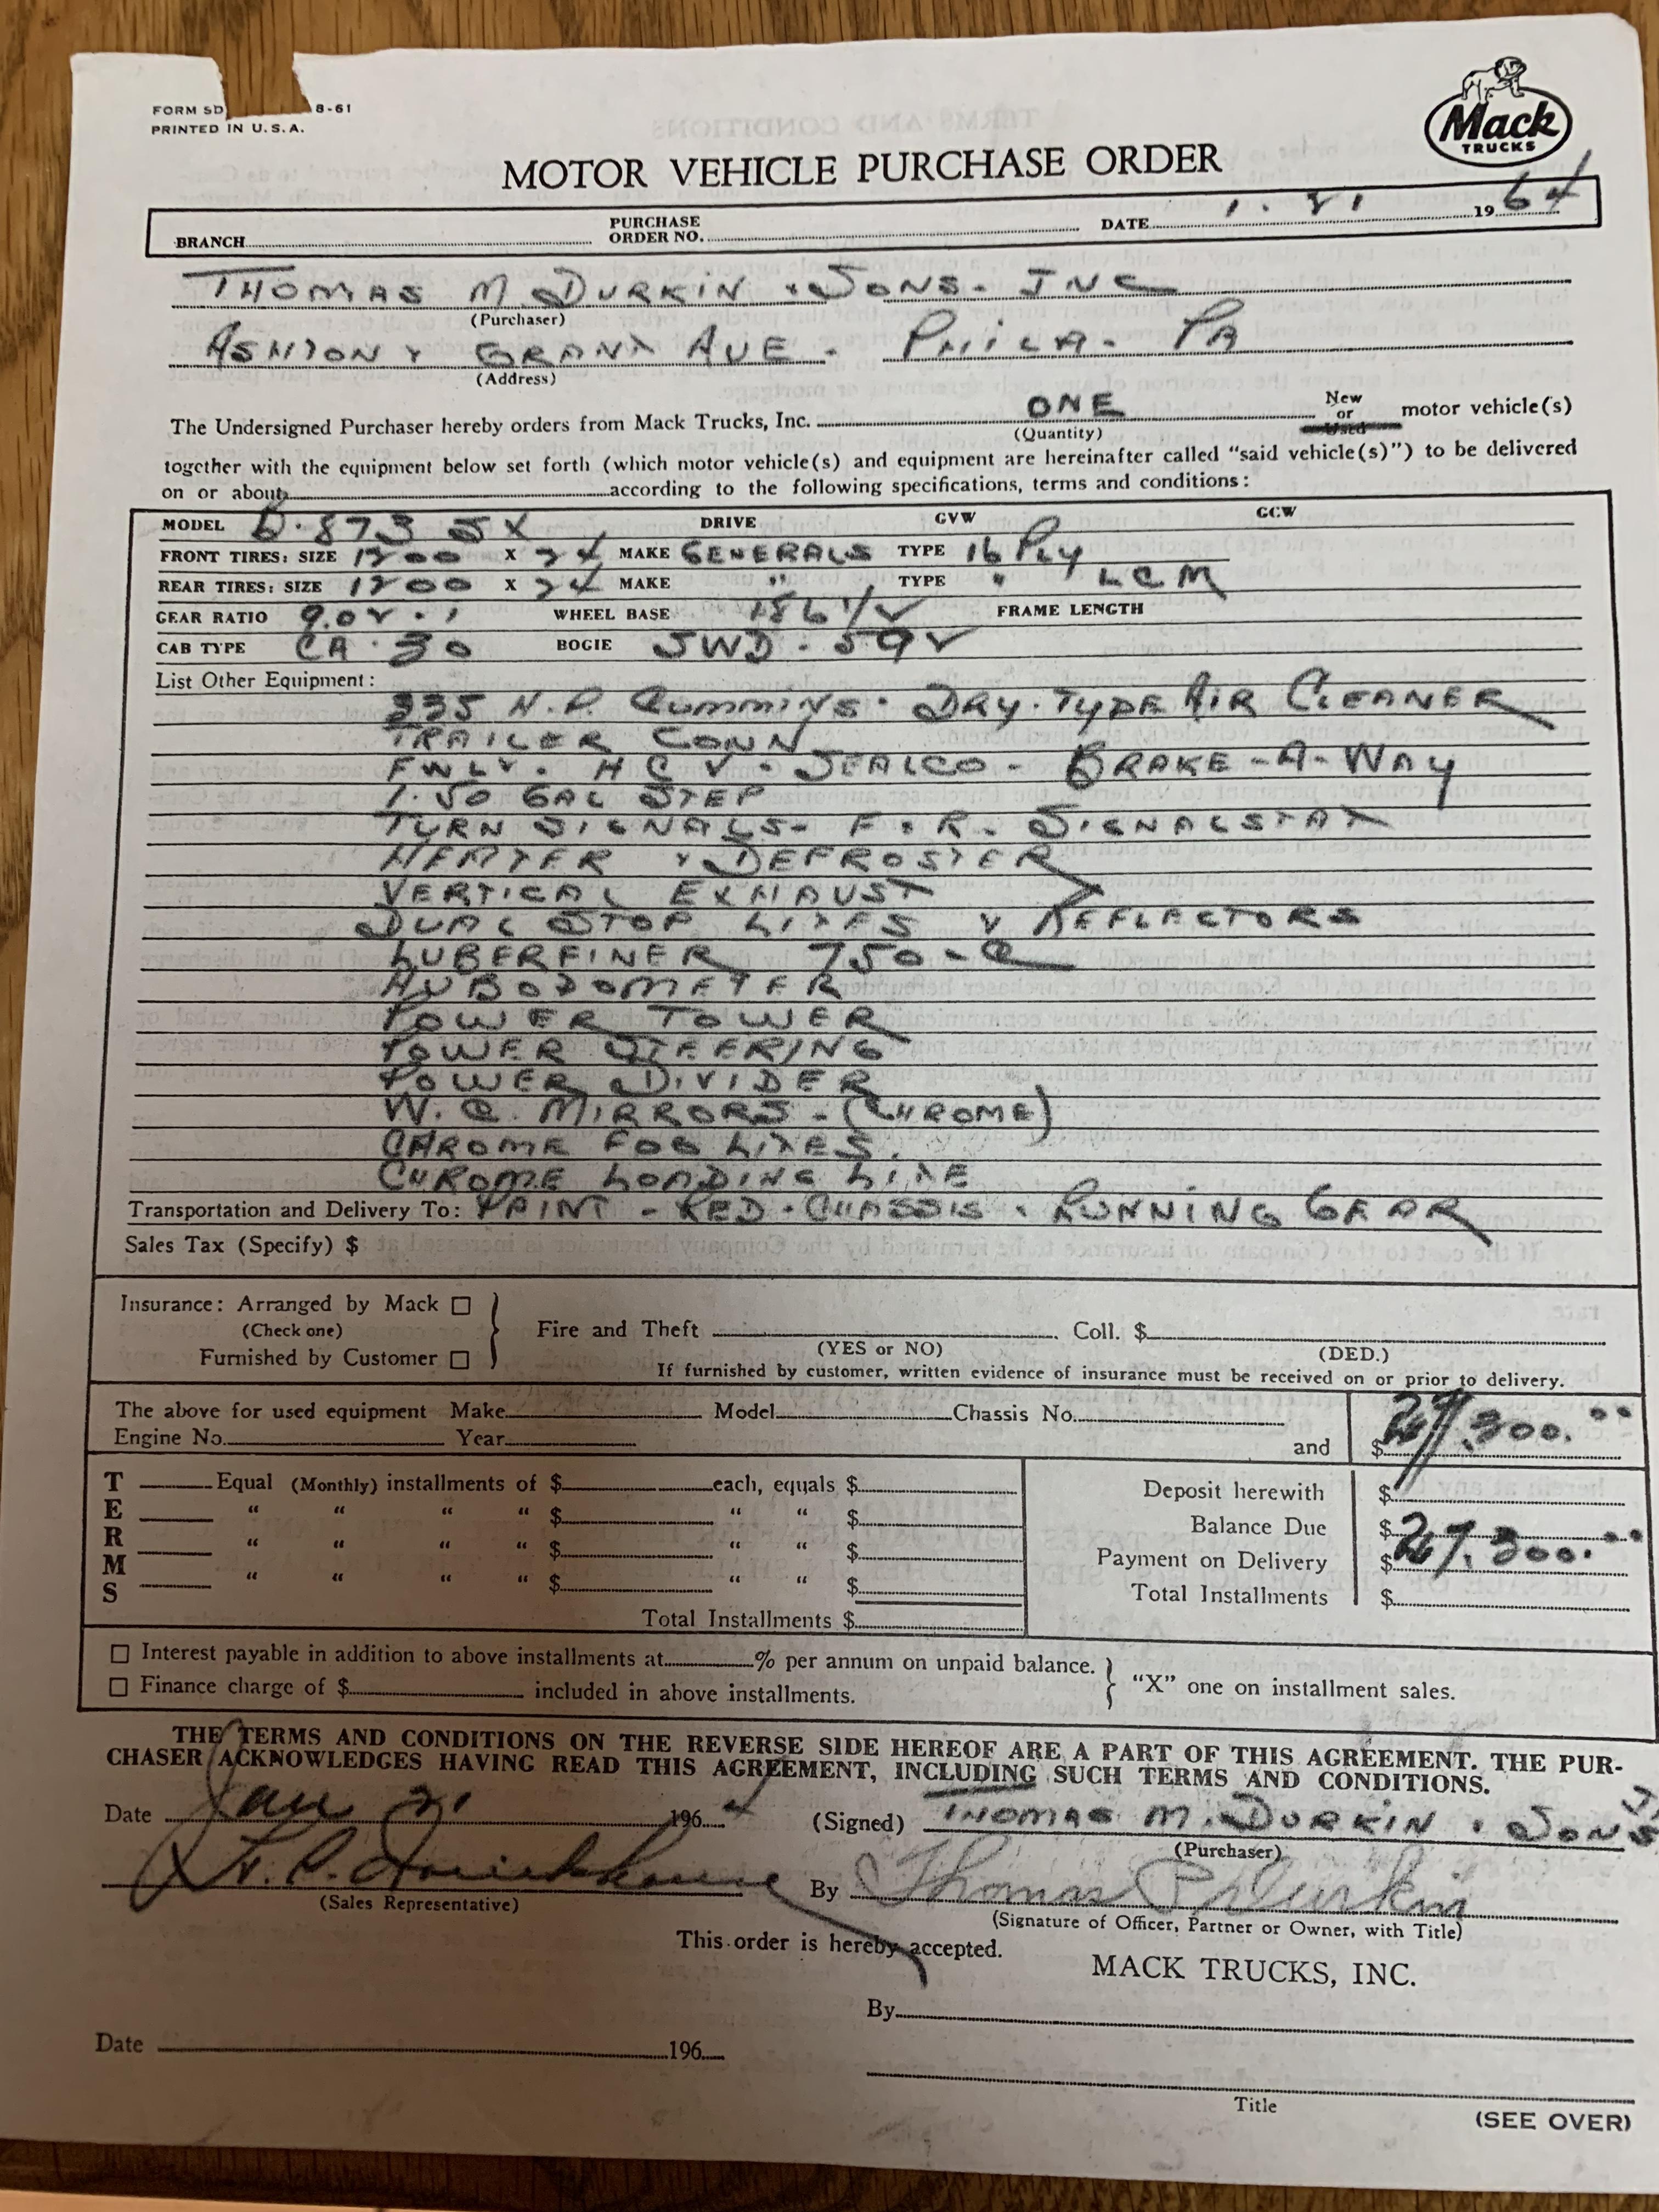 FORM SD 8-61
PRINTED IN U.S.A.
Mack
TRUCKS
MOTOR VEHICLE PURCHASE ORDER
BRANCH PURCHASE ORDER NO. DATE 1·21 1964
THOMAS M DURKIN & SONS. INC
(Purchaser)
ASHTON & GRANT AVE. PHILA. PA
(Address)
The Undersigned Purchaser hereby orders from Mack Trucks, Inc. ONE New or Used motor vehicle(s)
(Quantity)
together with the equipment below set forth (which motor vehicle(s) and equipment are hereinafter called "said vehicle(s)") to be delivered
on or about according to the following specifications, terms and conditions:
MODEL B·873 SX DRIVE GVW GCW
FRONT TIRES: SIZE 1200 X 24 MAKE GENERALS TYPE 16 PLY
REAR TIRES: SIZE 1200 X 24 MAKE " TYPE " LCM
GEAR RATIO 9.02 · 1 WHEEL BASE 186 1/2 FRAME LENGTH
CAB TYPE CA·30 BOGIE SWD·592
List Other Equipment:
335 H.P. Cummins · DRY·TYPE AIR CLEANER
TRAILER CONN
HCV · SEALCO - BRAKE-A-WAY
1·50 GAL STEP
TURN SIGNALS - F & R. SIGNALSTAT
HEATER & DEFROSTER
VERTICAL EXHAUST
DUAL STOP LITES & REFLECTORS
LUBERFINER 750-C
HUBODOMETER
POWER TOWER
POWER STEERING
POWER DIVIDER
W.C. MIRRORS - (CHROME)
CHROME FOG LITES.
CHROME LOADING LITE
Transportation and Delivery To: PAINT - RED · CHASSIS · RUNNING GEAR
Sales Tax (Specify) $
Insurance: Arranged by Mack
(Check one)
Furnished by Customer
Fire and Theft Coll. $
(YES or NO) (DED.)
If furnished by customer, written evidence of insurance must be received on or prior to delivery.
The above for used equipment Make Model Chassis No.
Engine No. Year and $ 29,300.00
TERMS
Equal (Monthly) installments of $ each, equals $
" " " " $ " " $
" " " " $ " " $
" " " " $ " " $
Total Installments $
Deposit herewith $
Balance Due $ 29,300.00
Payment on Delivery $
Total Installments $
Interest payable in addition to above installments at % per annum on unpaid balance.
Finance charge of $ included in above installments.
"X" one on installment sales.
THE TERMS AND CONDITIONS ON THE REVERSE SIDE HEREOF ARE A PART OF THIS AGREEMENT. THE PUR-
CHASER ACKNOWLEDGES HAVING READ THIS AGREEMENT, INCLUDING SUCH TERMS AND CONDITIONS.
Date Jan 21 1964 (Signed) THOMAS M. DURKIN & SONS
(Purchaser)
By Thomas P Durkin
(Sales Representative)
(Signature of Officer, Partner or Owner, with Title)
This order is hereby accepted.
MACK TRUCKS, INC.
By
Date 196
Title
(SEE OVER)